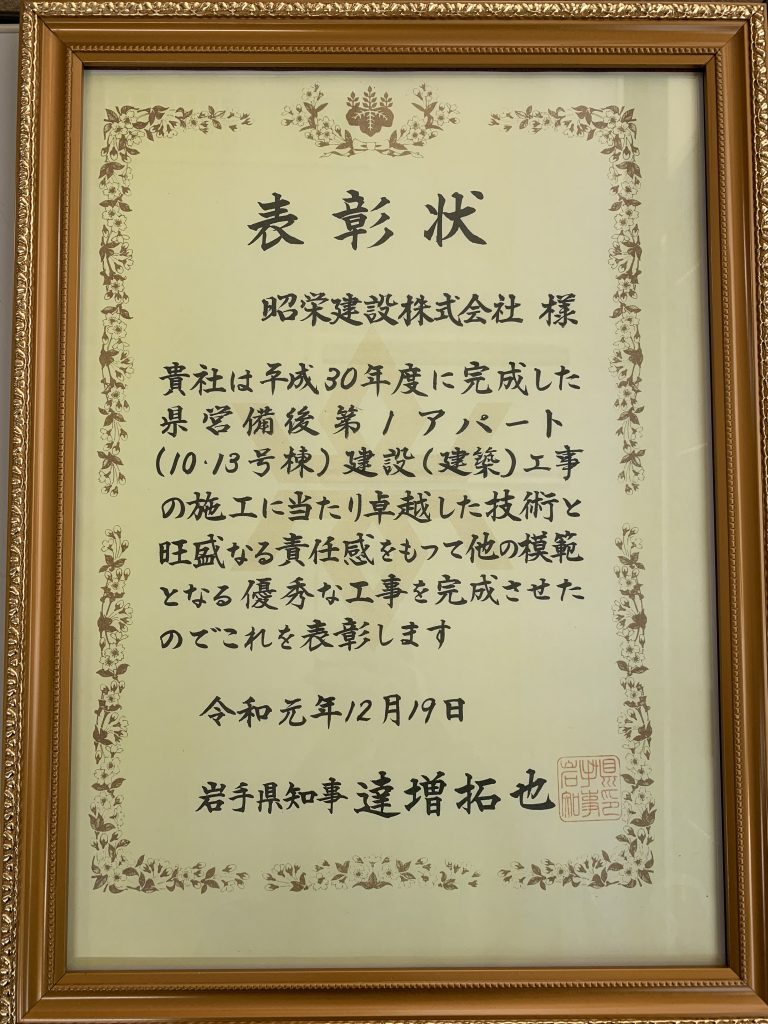 表彰状
昭栄建設株式会社 様
貴社は平成30年度に完成した
県営備後第1アパート
(10·13号棟)建設(建築)工事
の施工に当たり卓越した技術と
旺盛なる責任感をもって他の模範
となる優秀な工事を完成させた
のでこれを表彰します
令和元年12月19日
岩手県知事 達増拓也
岩手県知事印